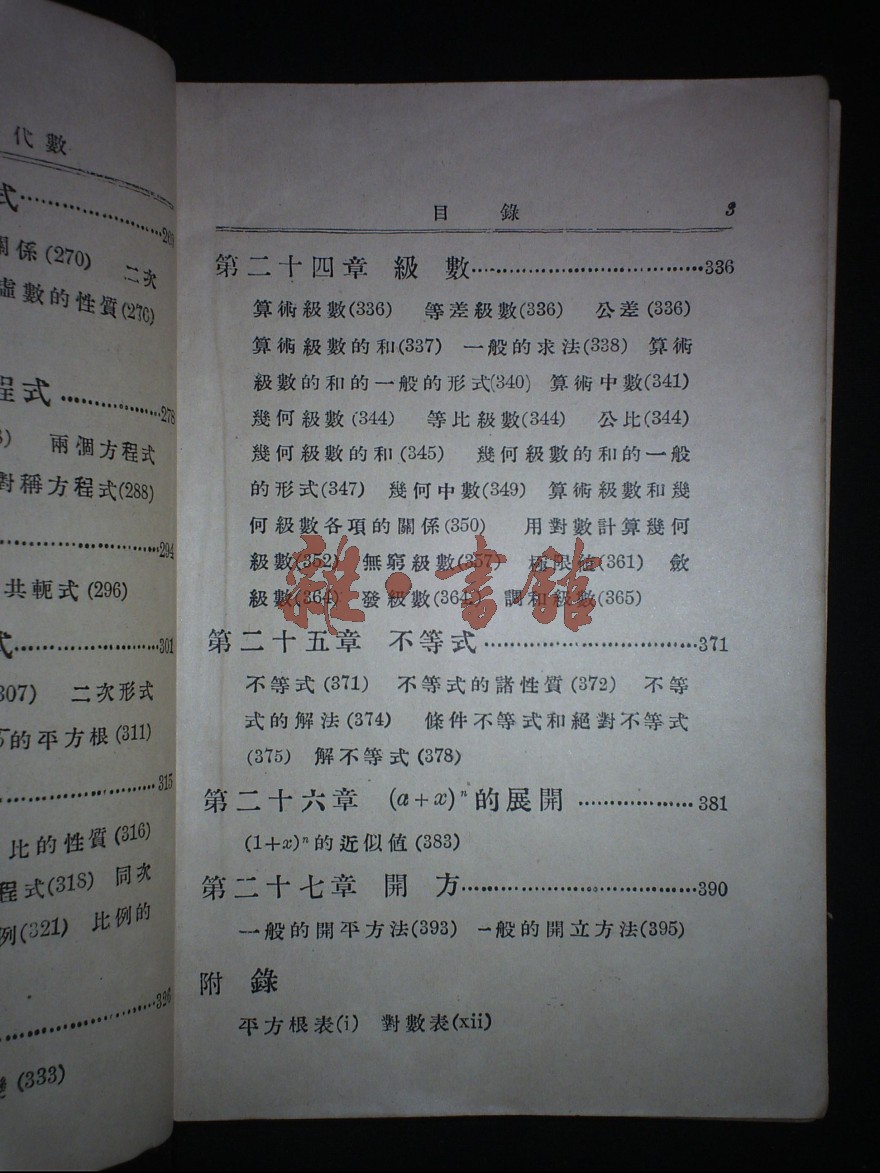 代數
式……269
關係(270) 二次
虛數的性質(276)
程式……278
兩個方程式
對稱方程式(288)
……294
共軛式(296)
式……301
307) 二次形式
的平方根(311)
……315
比的性質(316)
程式(318) 同次
例(321) 比例的
……326
(333)
目錄 3
第二十四章 級數……336
算術級數(336) 等差級數(336) 公差(336)
算術級數的和(337) 一般的求法(338) 算術
級數的和的一般的形式(340) 算術中數(341)
幾何級數(344) 等比級數(344) 公比(344)
幾何級數的和(345) 幾何級數的和的一般
的形式(347) 幾何中數(349) 算術級數和幾
何級數各項的關係(350) 用對數計算幾何
級數(352) 無窮級數(357) 極限值(361) 斂
級數(364) 發級數(364) 調和級數(365)
雜·書館
第二十五章 不等式……371
不等式(371) 不等式的諸性質(372) 不等
式的解法(374) 條件不等式和絕對不等式
(375) 解不等式(378)
第二十六章 (a+x)ⁿ的展開……381
(1+x)ⁿ的近似值(383)
第二十七章 開方……390
一般的開平方法(393) 一般的開立方法(395)
附錄
平方根表(i) 對數表(xii)